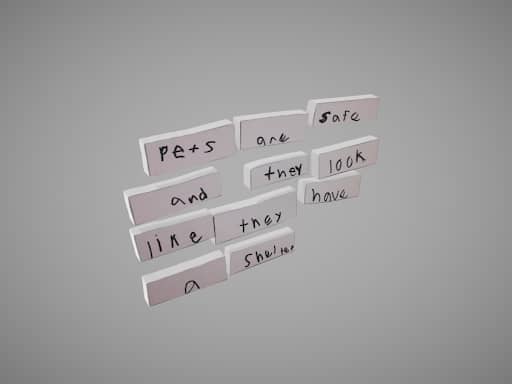 pets are safe
and they look
like they have
a shelter